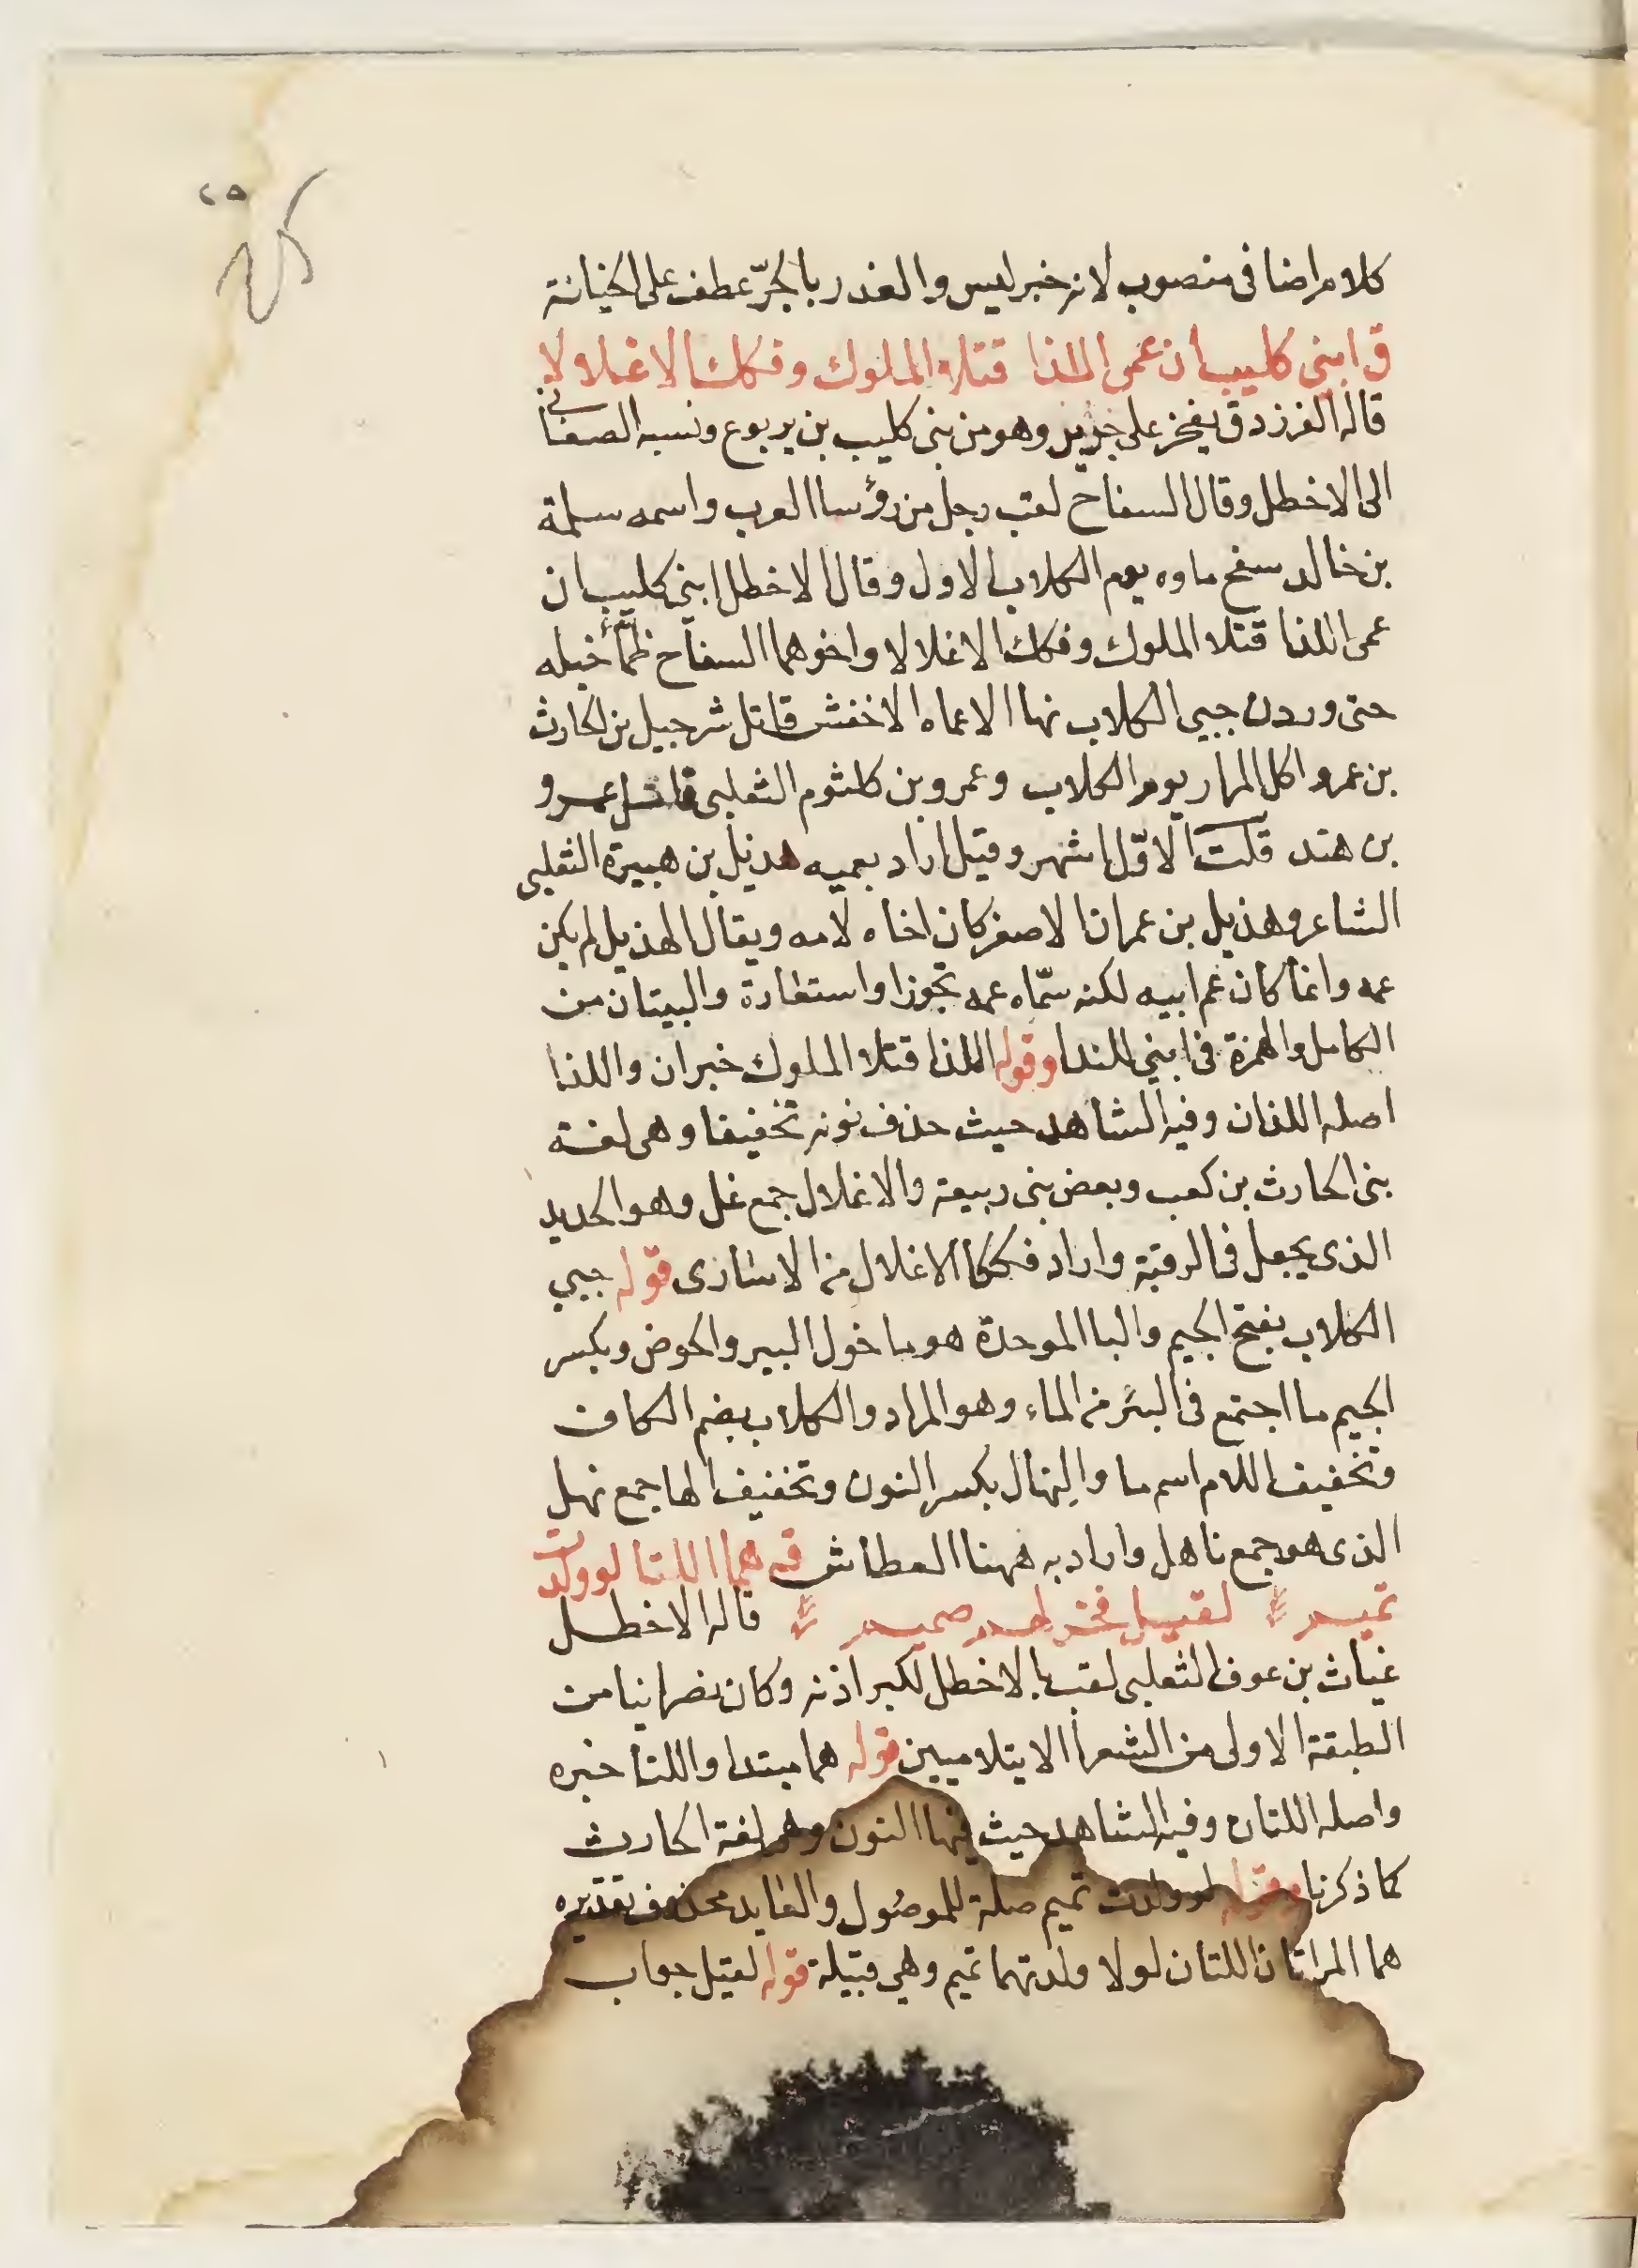 ٢٥
كلام اضافى منصوب لانه خبر ليس والغدر بالجرّ عطف على الخيانة
ق ابنى كليب ان عمى اللذا قتلا الملوك وفككا الاغلالا
قاله الفرزدق يفخر على جرير وهو من بنى كليب بن يربوع ونسبه الصغانى
الى الاخطل وقال السفاح لقب رجل من رؤسا العرب واسمه سلمة
بن خالد سفح ماوه يوم الكلاب الاول وقال الاخطل ابنى كليب ان
عمى اللذا قتلا الملوك وفككا الاغلالا واخوهما السفاح ظمّأ خيله
حتى وردن جبى الكلاب نهاا الاعماه الاخفش قاتل شرحبيل بن الحارث
بن عمرو اكل المرار يوم الكلاب وعمرو بن كلثوم الثعلبى قاتل عمرو
بن هند قلت الاوّل اشهر وقيل اراد بعميه هذيل بن هبيرة الثعلبى
الشاعر وهذيل بن عمران الاصغر كان اخاه لامه ويقال الهذيل لم يكن
عمه وانما كان عم ابيه لكنه سمّاه عمه تجوزا واستعارة والبيتان من
الكامل والهمزة فى ابنى للندا وقوله اللذا قتلا الملوك خبر ان واللذا
اصله اللذان وفيه الشاهد حيث حذف نونه تخفيفا وهى لغة
بنى الحارث بن كعب وبعض بنى ربيعة والاغلال جمع غل وهو الحديد
الذى يجعل فى الرقبة واراد فككا الاغلال من الاسارى قوله جبى
الكلاب بفتح الجيم والبا الموحدة هو ما حول البير والحوض وبكسر
الجيم ما اجتمع فى البئر من الماء وهو المراد والكلاب بضم الكاف
وتخفيف اللام اسم ما والنهال بكسر النون وتخفيف الها جمع نهل
الذى هو جمع ناهل واراد به ههنا العطاش قه هما اللتا لو ولدت
تميم لقيل فخر لهم صميم قاله الاخطل
غياث بن عوف الثعلبى لقب بالاخطل لكبر اذنه وكان نصرانيا من
الطبقة الاولى من الشعرا الاسلاميين قوله هما مبتدا واللتا خبره
واصله اللتان وفيه الشاهد حيث فيها النون وهى لغة الحارث
كما ذكرنا وقوله لو ولدت تميم صلة للموصول والعايد محذوف تقديره
هما المراتان اللتان لولا ولدتهما تميم وهى قبيلة قوله لقيل جواب